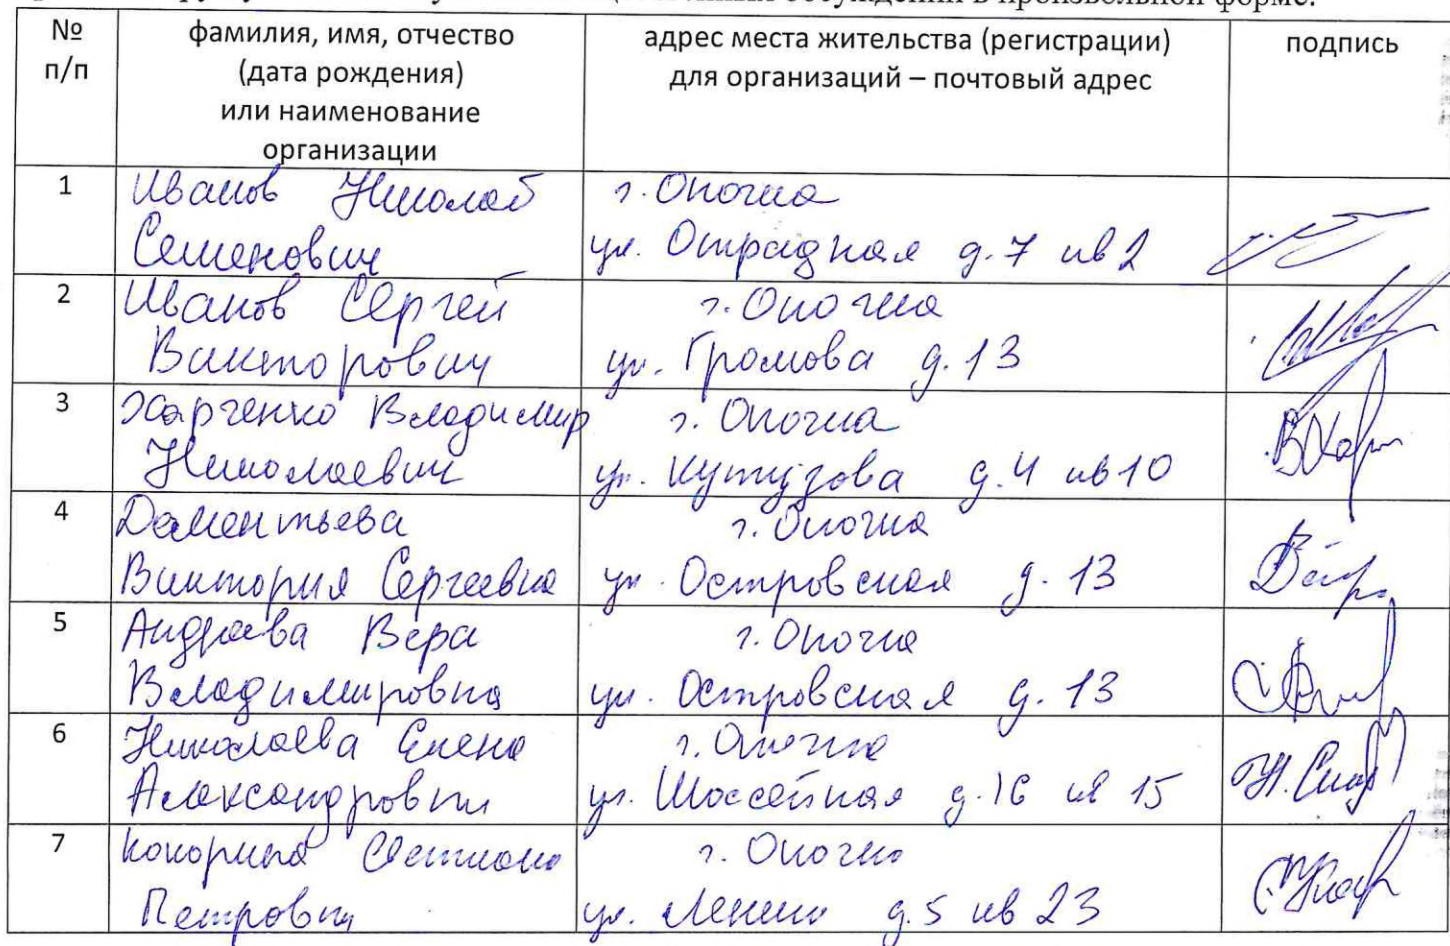 обсуждений в произвольной форме.
№ п/п
фамилия, имя, отчество
(дата рождения)
или наименование
организации
адрес места жительства (регистрации)
для организаций – почтовый адрес
подпись
1
Иванов Николай
Семенович
г. Опочка
ул. Отрадная д. 7 кв 2
2
Иванов Сергей
Викторович
г. Опочка
ул. Громова д. 13
3
Харченко Владимир
Николаевич
г. Опочка
ул. Кутузова д. 4 кв 10
4
Дементьева
Виктория Сергеевна
г. Опочка
ул. Островская д. 13
5
Андреева Вера
Владимировна
г. Опочка
ул. Островская д. 13
6
Николаева Елена
Александровна
г. Опочка
ул. Шоссейная д. 16 кв 15
7
Кокорина Светлана
Петровна
г. Опочка
ул. Ленина д. 5 кв 23